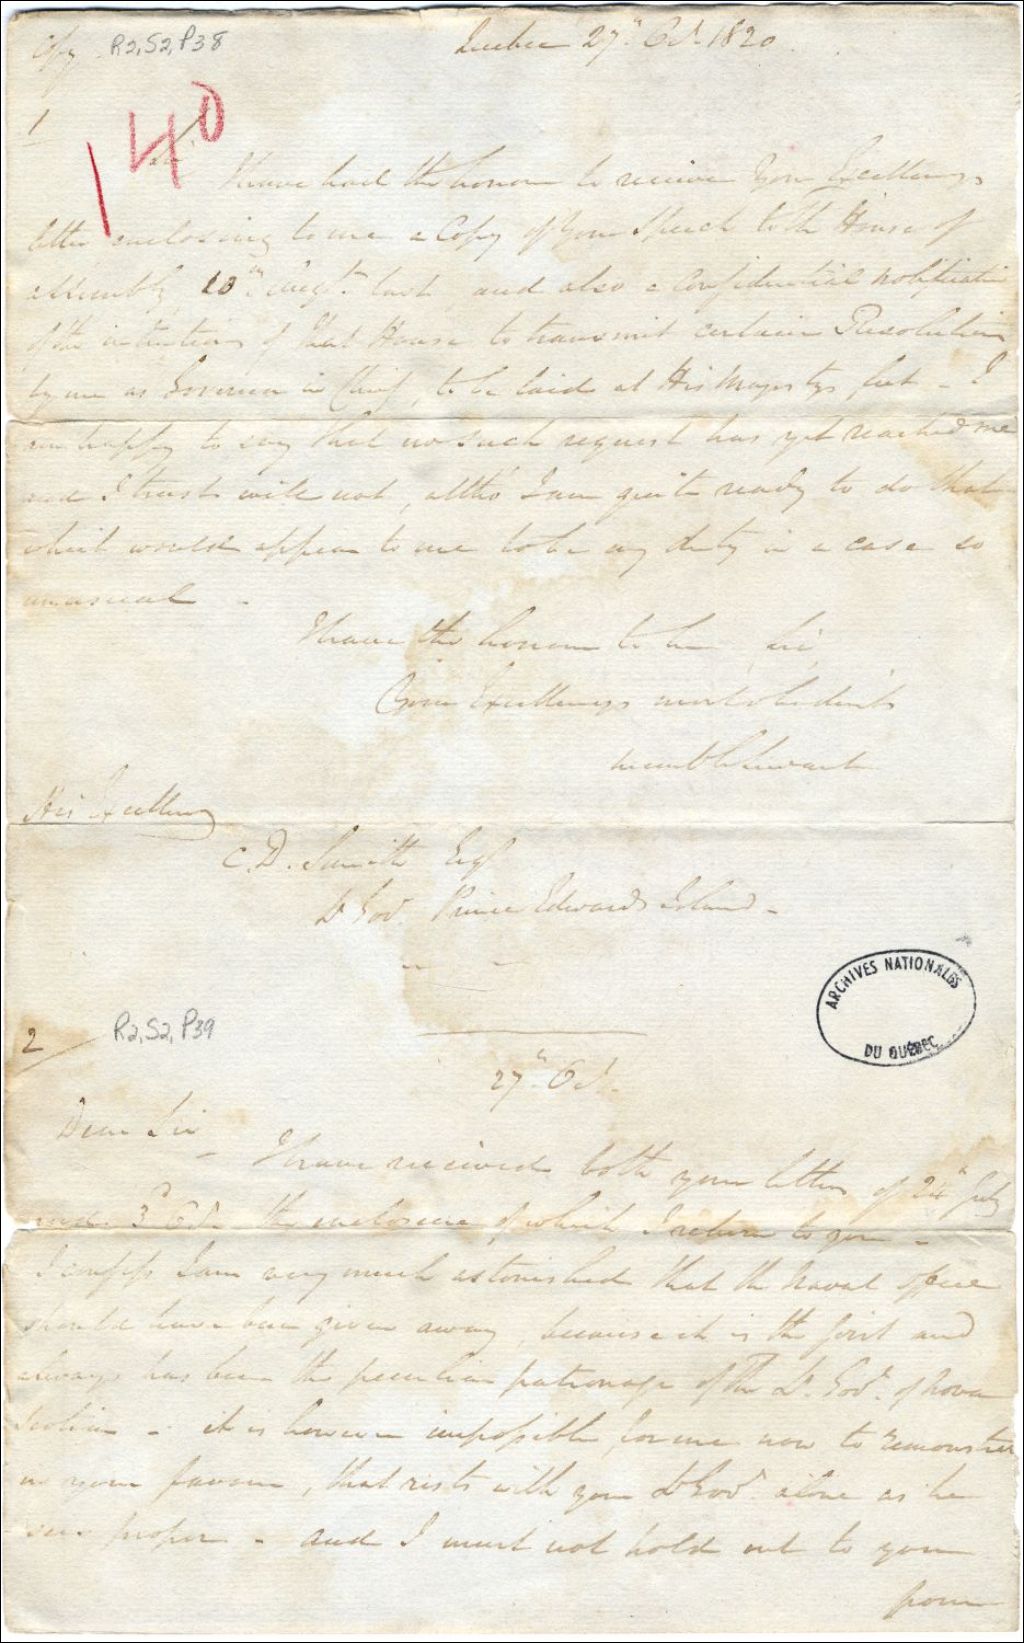 Copy R2, S2, P38 Quebec 27th Oct. 1820
1
140
Sir
I have had the honor to receive Your Excellencys
letter enclosing to me a Copy of Your Speech to the House of
assembly, 10th Augt. last, and also a Confidential notification
of the intention of that House to transmit certain Resolutions
to me as Governor in Chief, to be laid at His Majestys feet - I
am happy to say that no such request has yet reached me
and I trust will not, altho' I am quite ready to do that
which would appear to me to be my duty in a case so
unusual -
I have the honour to be Sir
Your Excellencys most obedient
humble Servant
His Excellency
C. D. Smith Esqr
Lt Govr. Prince Edwards Island -
ARCHIVES NATIONALES
DU QUÉBEC
2 R2, S2, P39
27th Oct.
Dear Sir
I have received both your letters of 24th July
and 3d Oct. the enclosure of which I return to you -
I confess I am very much astonished that the Naval office
should have been given away, because it is the first and
always has been the peculiar patronage of the Lt. Govr. of Nova
Scotia - it is however impossible for me now to remonstrate
in your favour, that rests with your Lt Govr. alone as he
sees proper - and I must not hold out to you